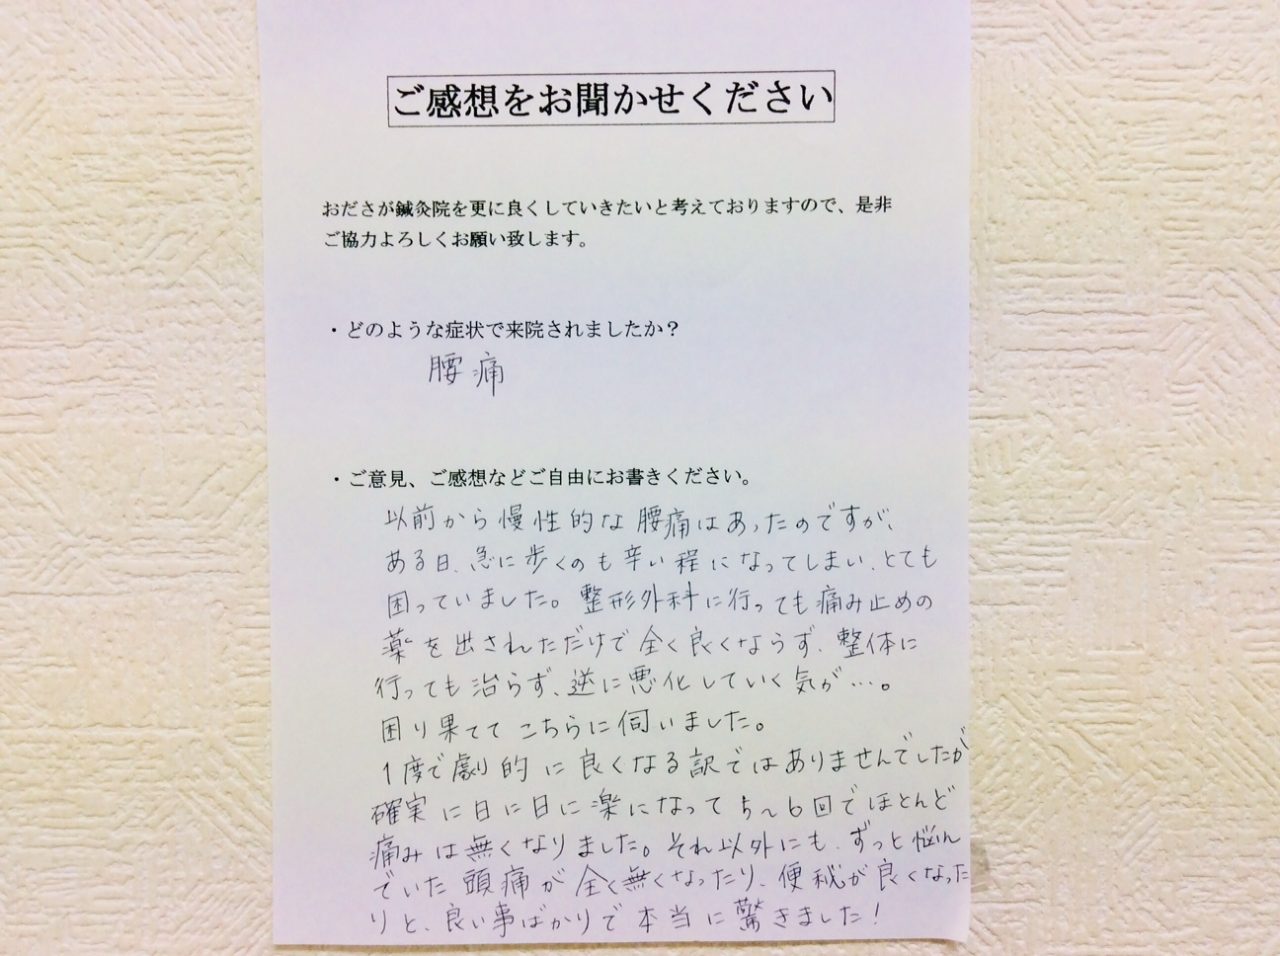 ご感想をお聞かせください
おださが鍼灸院を更に良くしていきたいと考えておりますので、是非
ご協力よろしくお願い致します。
・どのような症状で来院されましたか？
腰痛
・ご意見、ご感想などご自由にお書きください。
以前から慢性的な腰痛はあったのですが、
ある日、急に歩くのも辛い程になってしまい、とても
困っていました。整形外科に行っても痛み止めの
薬を出されただけで全く良くならず、整体に
行っても治らず、逆に悪化していく気が…。
困り果ててこちらに伺いました。
1度で劇的に良くなる訳ではありませんでしたが
確実に日に日に楽になって5〜6回でほとんど
痛みは無くなりました。それ以外にも、ずっと悩ん
でいた頭痛が全く無くなったり、便秘が良くなった
りと、良い事ばかりで本当に驚きました！